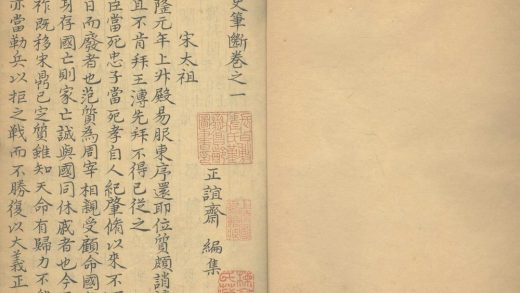 史筆斷卷之一
正誼齋 編集
宋太祖
隆元年上升殿易服東序還即位質頗誚讓
且不肯拜王溥先拜不得已從之
臣當死忠子當死孝自人紀肇脩以來不
日而廢者也范質為周宰相親受顧命國
身存國亡則家亡誠與國同休戚者也今
祚既移宋鼎已定質雖知天命有歸力不
亦當勒兵以拒之戰而不勝復以大義正